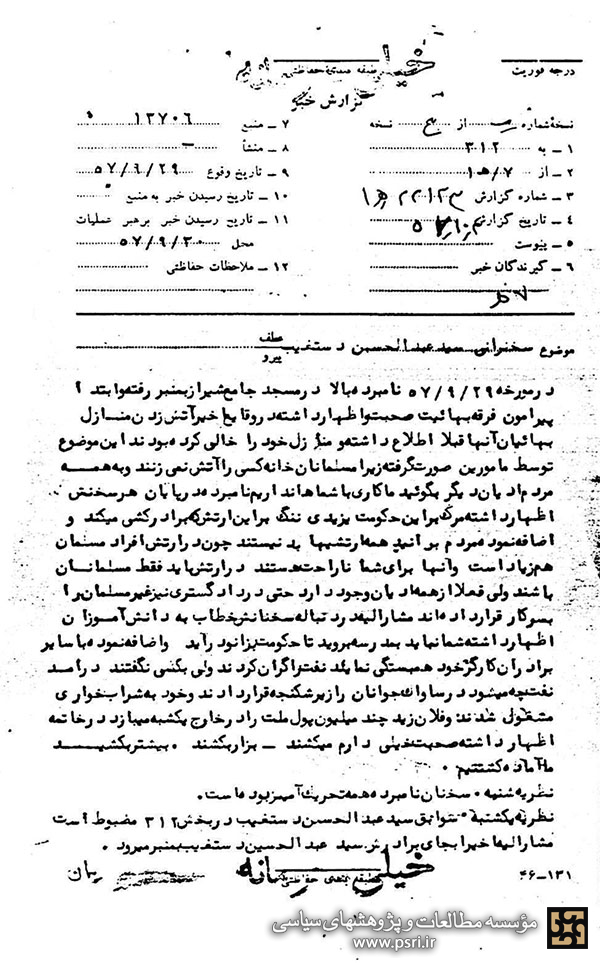 درجه فوریت
طبقه بندی حفاظتی
خیلی
گزارش خبر
نسخهٔ شماره از نسخه
۱ ـ به ۳۱۲
۲ ـ از ۷/ﻫ۱
۳ ـ شماره گزارش
۴ ـ تاریخ گزارش
۵ ـ پیوست
۶ ـ گیرندگان خبر
۷ ـ منبع ۱۲۷۰۶
۸ ـ منشأ
۹ ـ تاریخ وقوع ۵۷/۹/۲۹
۱۰ ـ تاریخ رسیدن خبر به منبع
۱۱ ـ تاریخ رسیدن خبر برهبر عملیات
محل ۵۷/۹/۳۰
۱۲ ـ ملاحظات حفاظتی
موضوع سخنرانی سید عبدالحسین دستغیب عطف
پیرو
در مورخه ۵۷/۹/۲۹ نامبرده بالا در مسجد جامع شیراز بمنبر رفته و ابتدا
پیرامون فرقه بهائیت صحبت و اظهار داشته در وقایع اخیر آتش زدن منازل
بهائیان آنها قبلا اطلاع داشته و منازل خود را خالی کرده بودند این موضوع
توسط مامورین صورت گرفته زیرا مسلمانان خانه کسی را آتش نمی زنند و به همه
مردم ادیان دیگر بگوئید ما کاری با شما نداریم نامبرده در پایان هر سخنش
اظهار داشته مرگ بر این حکومت یزیدی ننگ بر این ارتش که برادر کشی میکند و
اضافه نموده مردم بدانید همه ارتشیها بد نیستند چون در ارتش افراد مسلمان
هم زیاد است و آنها برای شما ناراحت هستند در ارتش باید فقط مسلمانان
باشند ولی فعلا از همه ادیان وجود دارد حتی در دادگستری نیز غیر مسلمان را
بسر کار قرار داده اند مشارالیه در دنباله سخنانش خطاب به دانش آموزان
اظهار داشته شما نباید بمدرسه بروید تا حکومت بزانو درآید و اضافه نموده با سایر
برادران کارگر خود همبستگی نمایند نفت را گران کردند ولی بکسی نگفتند درآمد
نفت چه میشود در ساواک جوانان را زیر شکنجه قرار دادند و خود به شرابخواری
مشغول شدند و فلان زن چند میلیون پول ملت را در خارج یکشبه میبازد در خاتمه
اظهار داشته صحبت خیلی دارم میکشند ـ بزار بکشند . بیشتر بکشید
ما آماده کشتنیم .
نظریه شنبه . سخنان نامبرده همه تحریک آمیز بوده است .
نظریه یکشنبه . سوابق سید عبدالحسین دستغیب در بخش ۳۱۲ مضبوط است
مشارالیه اخیرا بجای برادرش سید عبدالحسین دستغیب بمنبر میرود .
خیلی
طبقه بندی حفاظتی
۴۶-۱۳۱
مؤسسه مطالعات و پژوهشهای سیاسی
www.psri.ir